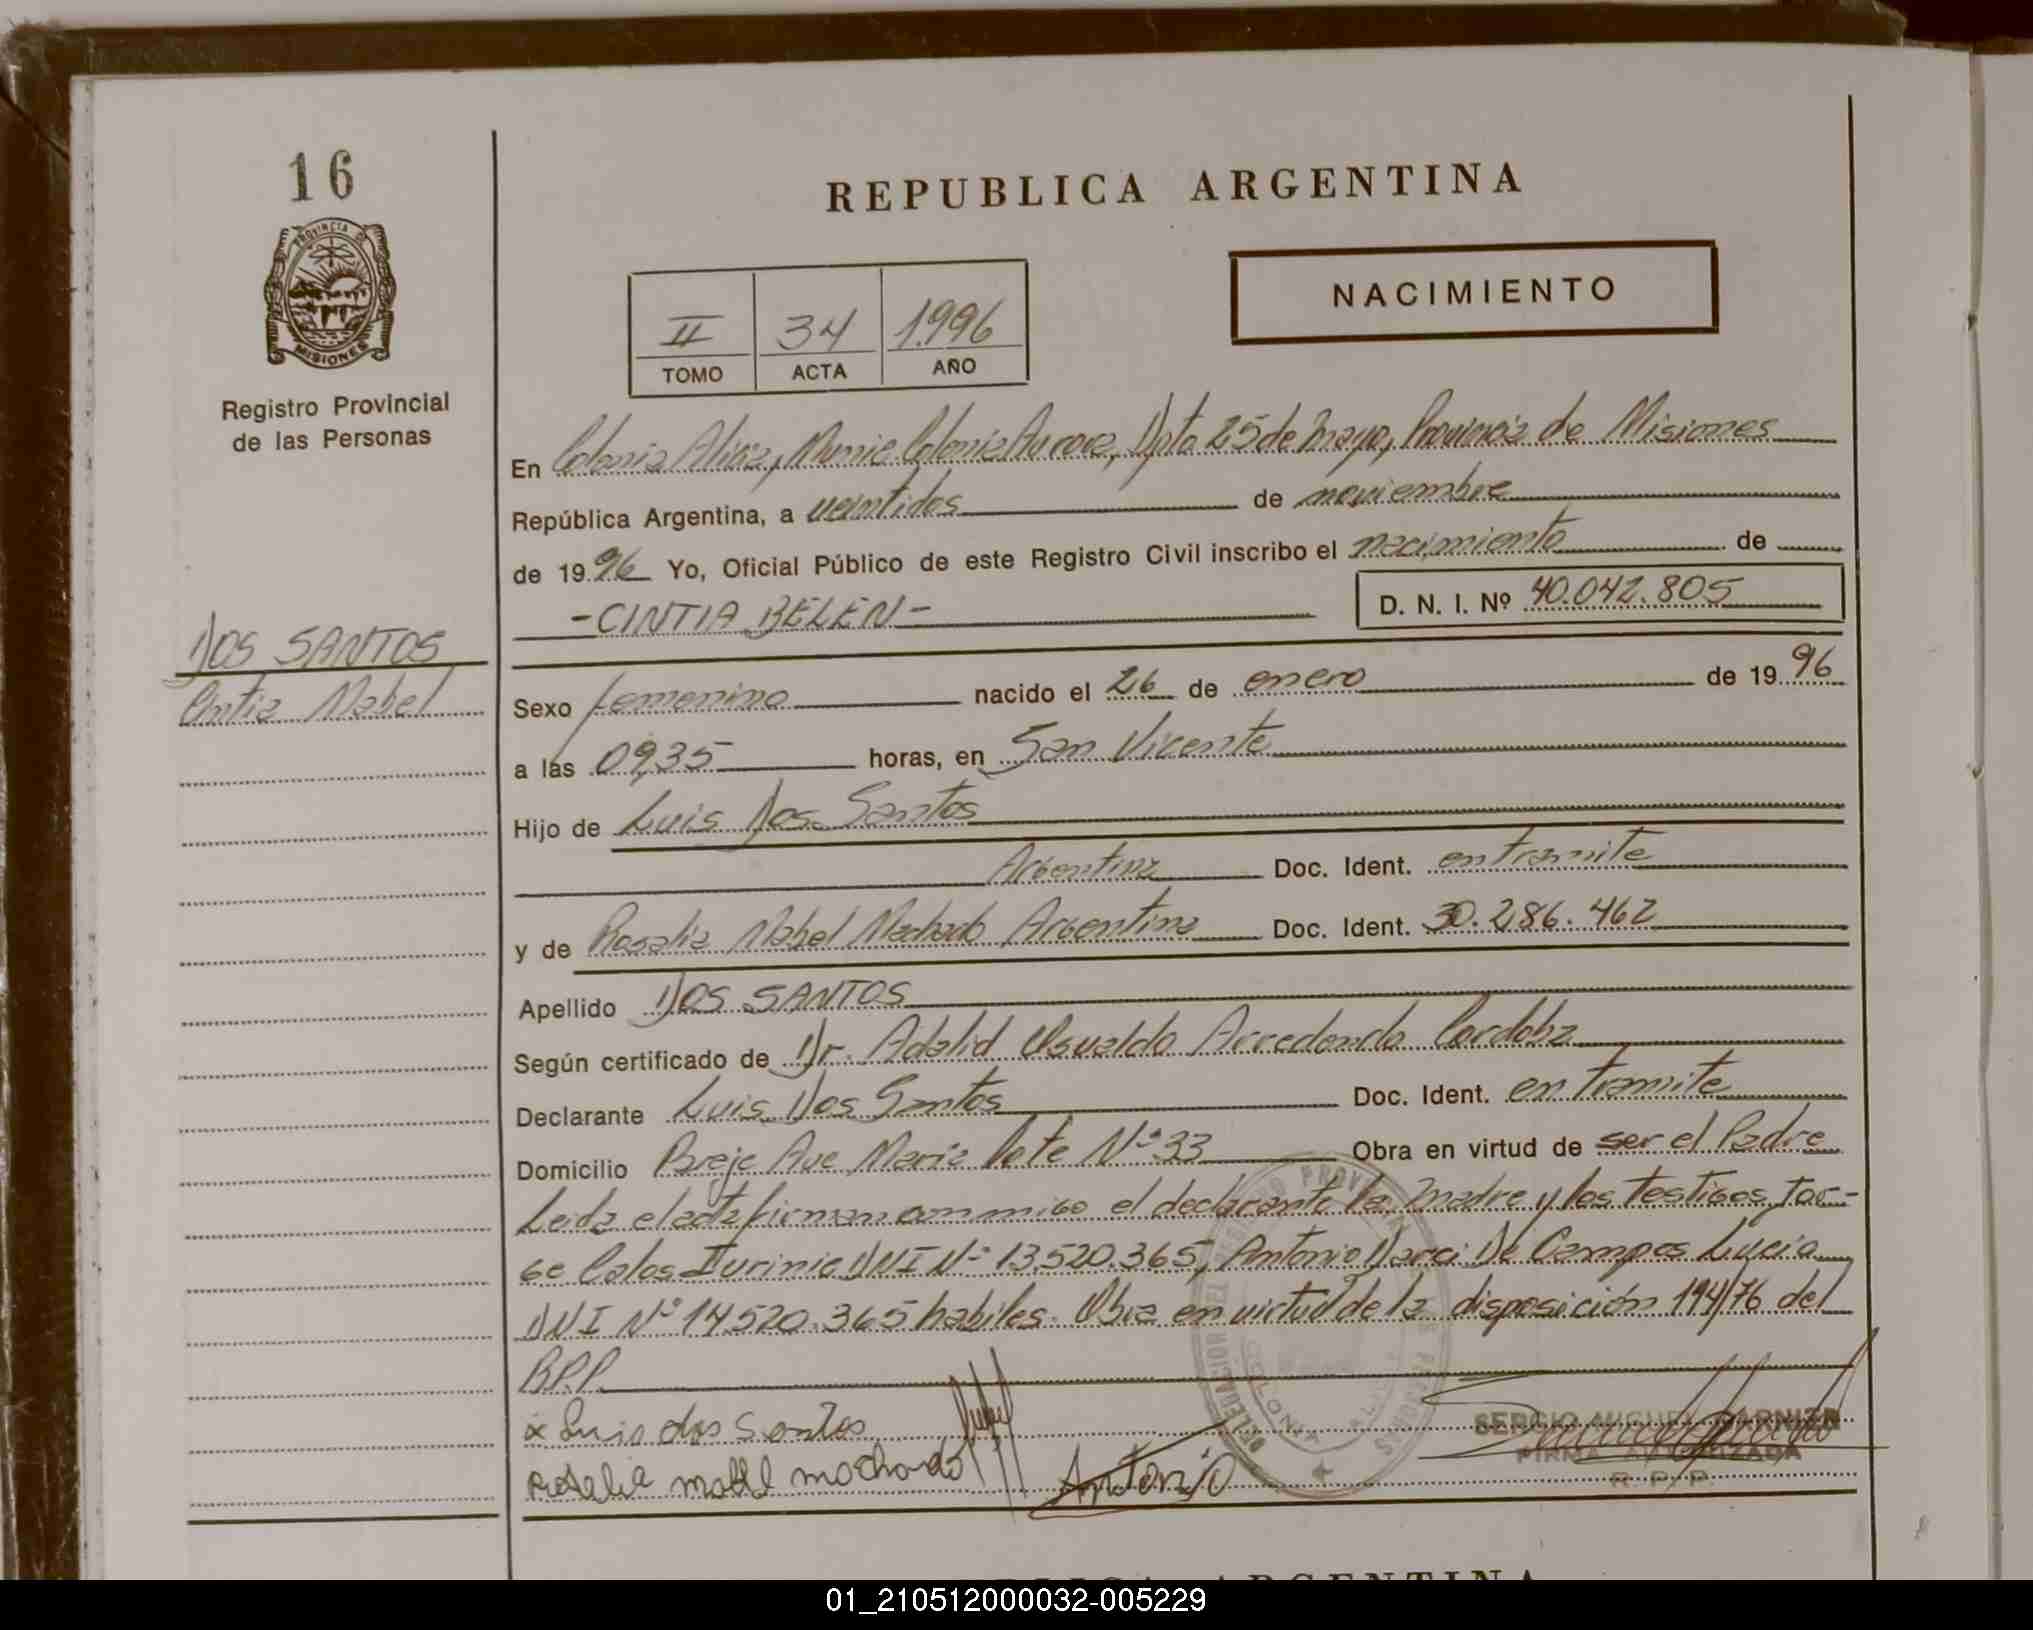 16
REPUBLICA ARGENTINA
PROVINCIA DE
MISIONES
NACIMIENTO
II 34 1.996
TOMO ACTA AÑO
Registro Provincial
de las Personas
En Colonia Alicia, Munic Colonia Aurora, Dpto 25 de Mayo, Provincia de Misiones
República Argentina, a veintidos de noviembre
de 1996 Yo, Oficial Público de este Registro Civil inscribo el nacimiento de
-CINTIA BELEN-
D. N. I. Nº 40.042.805
DOS SANTOS
Cintia Mabel
Sexo femenino nacido el 26 de enero de 1996
a las 09,35 horas, en San Vicente
Hijo de Luis Dos Santos
Argentina Doc. Ident. en tramite
y de Rosalia Mabel Machado Argentina Doc. Ident. 30.286.462
Apellido DOS SANTOS
Según certificado de Dr. Adalid Osvaldo Arredondo Cordoba
Declarante Luis Dos Santos Doc. Ident. en tramite
Domicilio Ave Maria lote Nº 33 Obra en virtud de ser el Padre
Leida el acta firman conmigo el declarante la madre y los testigos Jor-
ge Calos DNI Nº 13.520.365, Antonio Darci De Campos Lucio
DNI Nº 14.520.365 habiles. Obra en virtud de la disposición 194/76 del
R.P.P.
x Luis dos Santos
rosalia mabel machado
Antonio
SERGIO MIGUEL GARNIER
FIRMA AUTORIZADA
R. P. P.
REPUBLICA ARGENTINA
01_210512000032-005229